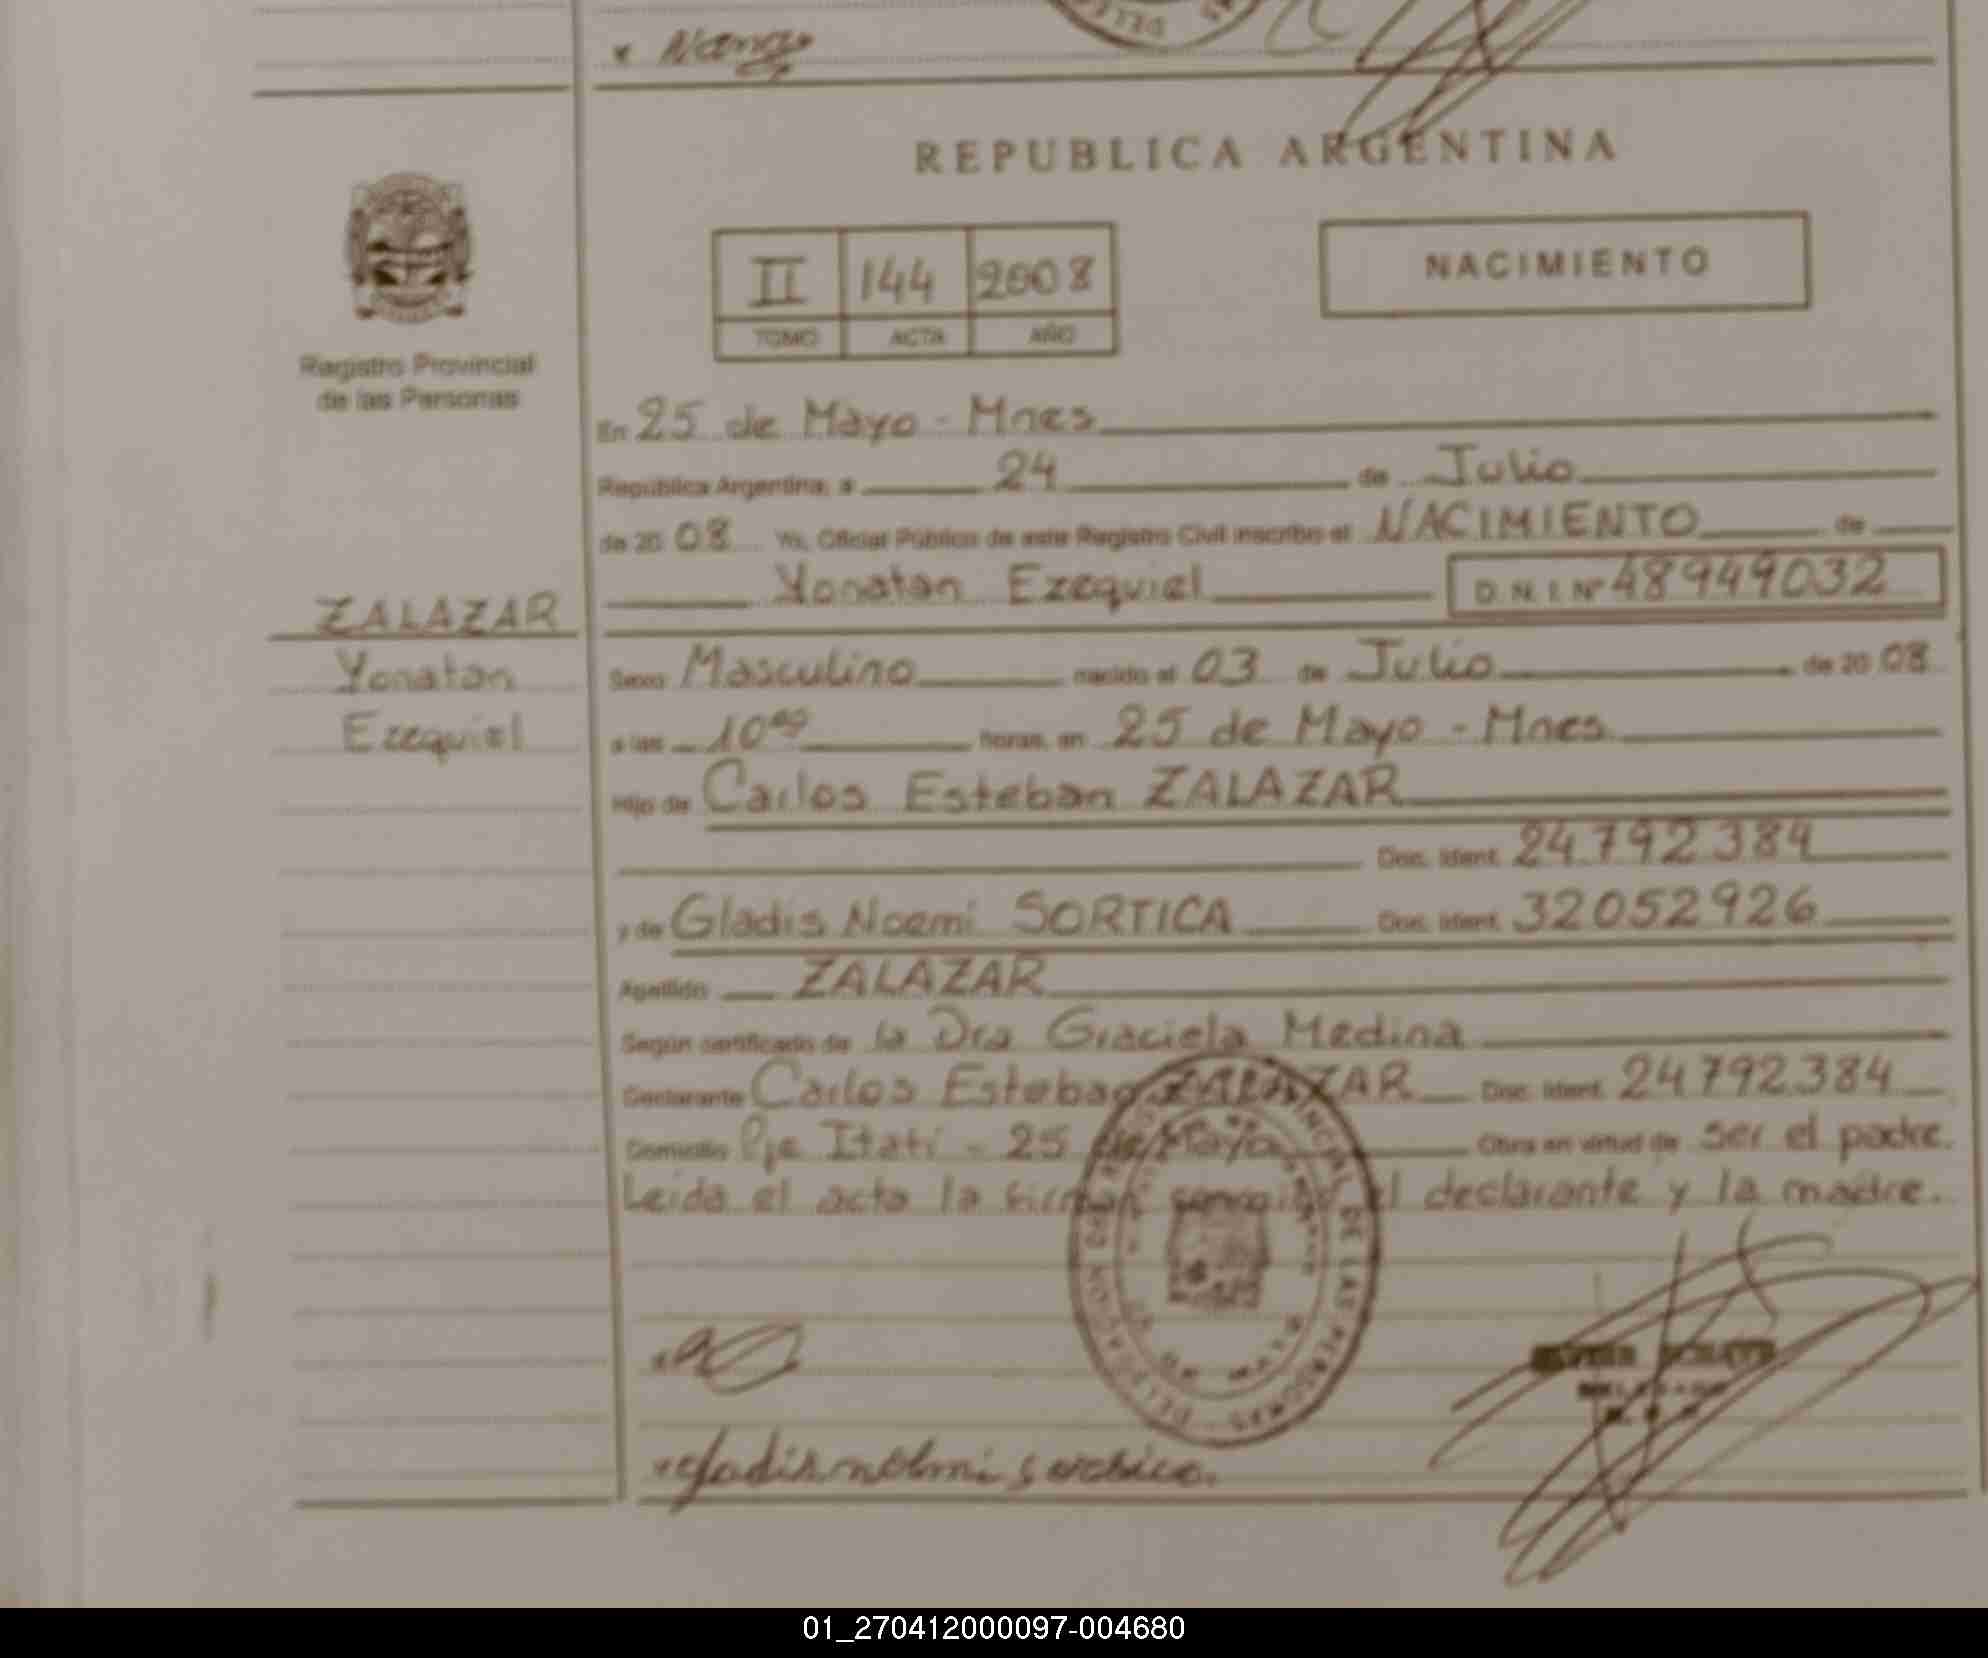 REPUBLICA ARGENTINA
II 144 2008
TOMO ACTA AÑO
NACIMIENTO
Registro Provincial
de las Personas
En 25 de Mayo - Mnes
República Argentina, a 24 de Julio
de 2008 Yo, Oficial Público de este Registro Civil inscribo el NACIMIENTO de
Yonatan Ezequiel D.N.I. Nº 48949032
ZALAZAR
Yonatan
Ezequiel
Sexo Masculino nacido el 03 de Julio de 2008
a las 10 horas, en 25 de Mayo - Mnes
Hijo de Carlos Esteban ZALAZAR
Doc. Ident. 24792384
y de Gladis Noemi SORTICA Doc. Ident. 32052926
Apellido ZALAZAR
Según certificado de la Dra Graciela Medina
Declarante Carlos Esteban ZALAZAR Doc. Ident. 24792384
Domicilio Pje Itatí - 25 de Mayo Obra en virtud de ser el padre.
Leida el acta la firman conmigo el declarante y la madre.
01_270412000097-004680